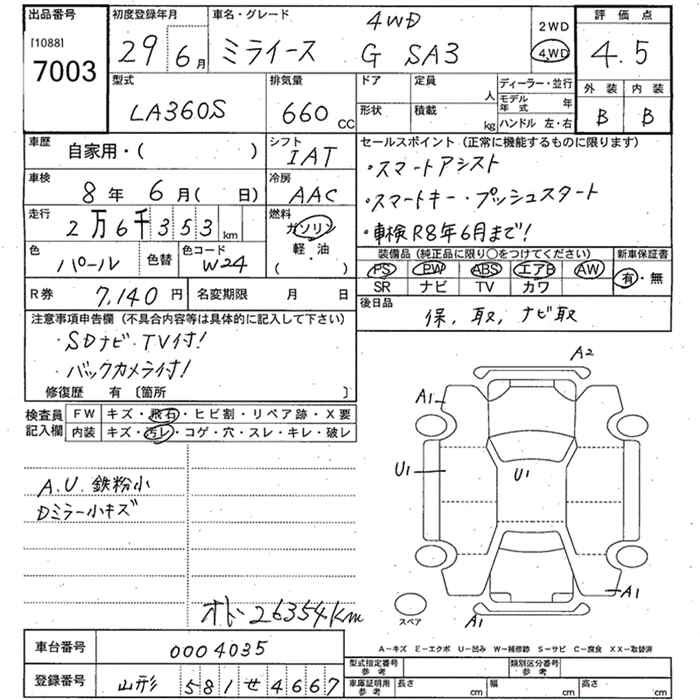 出品番号 初度登録年月 車名・グレード 評価点
[1088]
7003 29年 6月 ミライース 4WD G SA3 2WD 4WD 4.5
型式 排気量 ドア 定員 人 ディーラー・並行 外装 内装
LA360S 660cc 形状 積載 kg モデル年式 年 B B
ハンドル 左・右
車歴 自家用・( ) シフト IAT セールスポイント(正常に機能するものに限ります)
・スマートアシスト
車検 8年 6月( 日) 冷房 AAC ・スマートキー・プッシュスタート
走行 2万6千353km 燃料 ガソリン 軽・油 ( ) ・車検R8年6月まで!
色 パール 色替 色コード W24 装備品(純正品に限り○をつけてください) 新車保証書
PS PW ABS エアB AW 有・無
SR ナビ TV カワ
R券 7,140円 名変期限 月 日 後日品
保、取、ナビ取
注意事項申告欄(不具合内容等は具体的に記入して下さい)
・SDナビ・TV付!
・バックカメラ付!
修復歴 有〔箇所 〕
検査員記入欄 FW キズ・飛石・ヒビ割・リペア跡・X要
内装 キズ・汚レ・コゲ・穴・スレ・キレ・破レ
A2
A1
U1 U1
A.U.鉄粉小
Dミラー小キズ
A1
スペア A1
オド 26354km
A-キズ E-エクボ U-凹み W-補修跡 S-サビ C-腐食 XX-取替済
車台番号 0004035
登録番号 山形 581 せ 4667
型式指定番号 参考 類別区分番号 参考
車庫証明用 参考 長さ cm 幅 cm 高さ cm